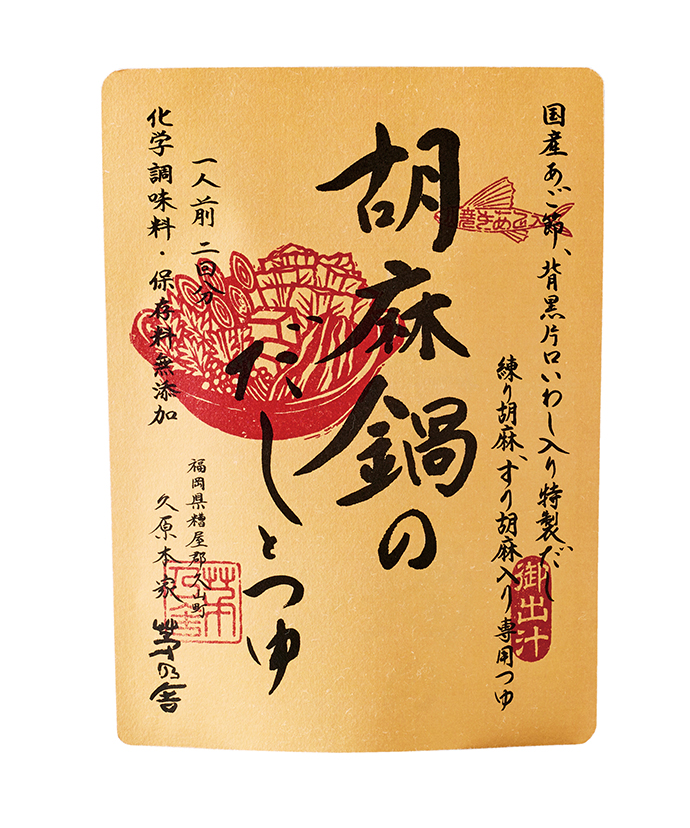 国産あご節、背黒片口いわし入り特製だし
練り胡麻、すり胡麻入り専用つゆ
焼きあご入
御出汁
胡麻鍋の
だしとつゆ
一人前 二回分
化学調味料・保存料無添加
福岡県糟屋郡久山町
久原本家 茅乃舎
茅乃舎